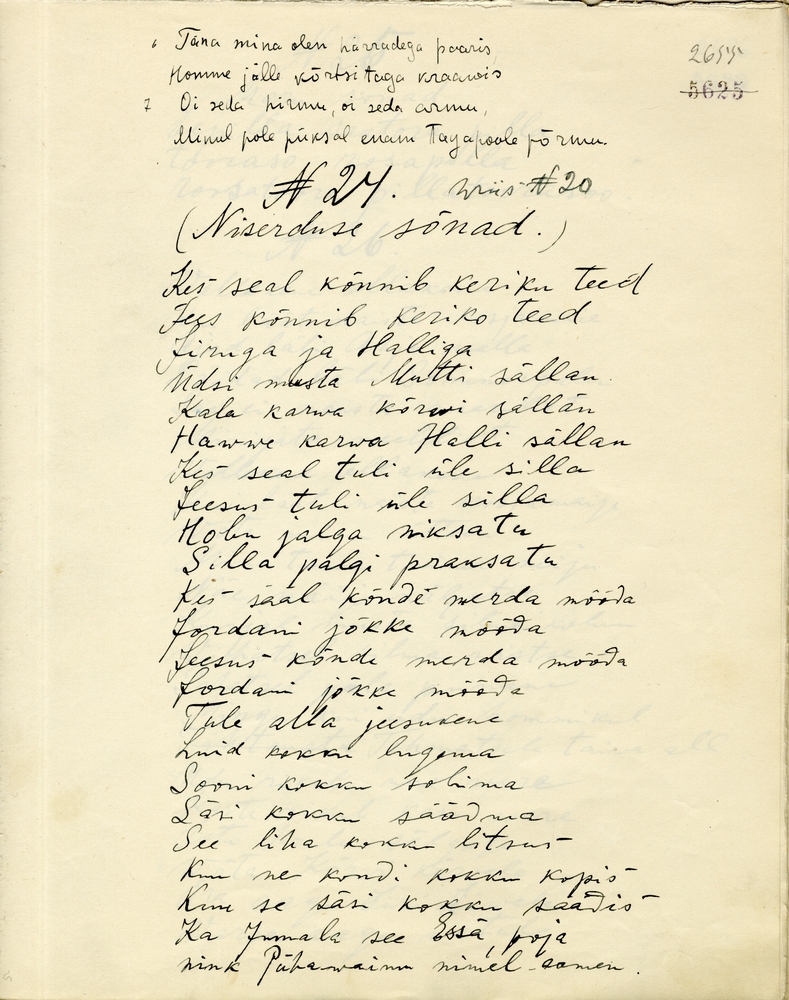 6 Täna mina olen härradega paaris,
2655
Homme jälle kõrtsi taga kraawis
5625
7 Oi seda hirmu, oi seda armu,
Minul pole püksal enam tagapoole põrmu.
№ 27. Wiis № 20
(Niserduse sõnad.)
Kes seal kõnnib keriku teed
Jees kõnnib keriko teed
Jiruga ja Halliga
Üdsi musta Mutti sällan
Kala karwa kõrwi sällän
Hawwe karwa Halli sällan
Kes seal tuli üle silla
Jeesus tuli üle silla
Hobu jalga niksatu
Silla palgi praksatu
Kes sääl kõnde merda mööda
Jordani jõkke mööda
Jeesus kõnde merda mööda
Jordani jõkke mööda
Tule alla jeesukene
Luid kokku lugema
Sooni kokku sobima
Säsi kokku säädma
See liha kokku litsus
Kuu ne kondi kokku kopis
Kuu se säsi kokku saadis
Ka Jumala see Essä, poja
nink Pühawaimu nimel aamen.